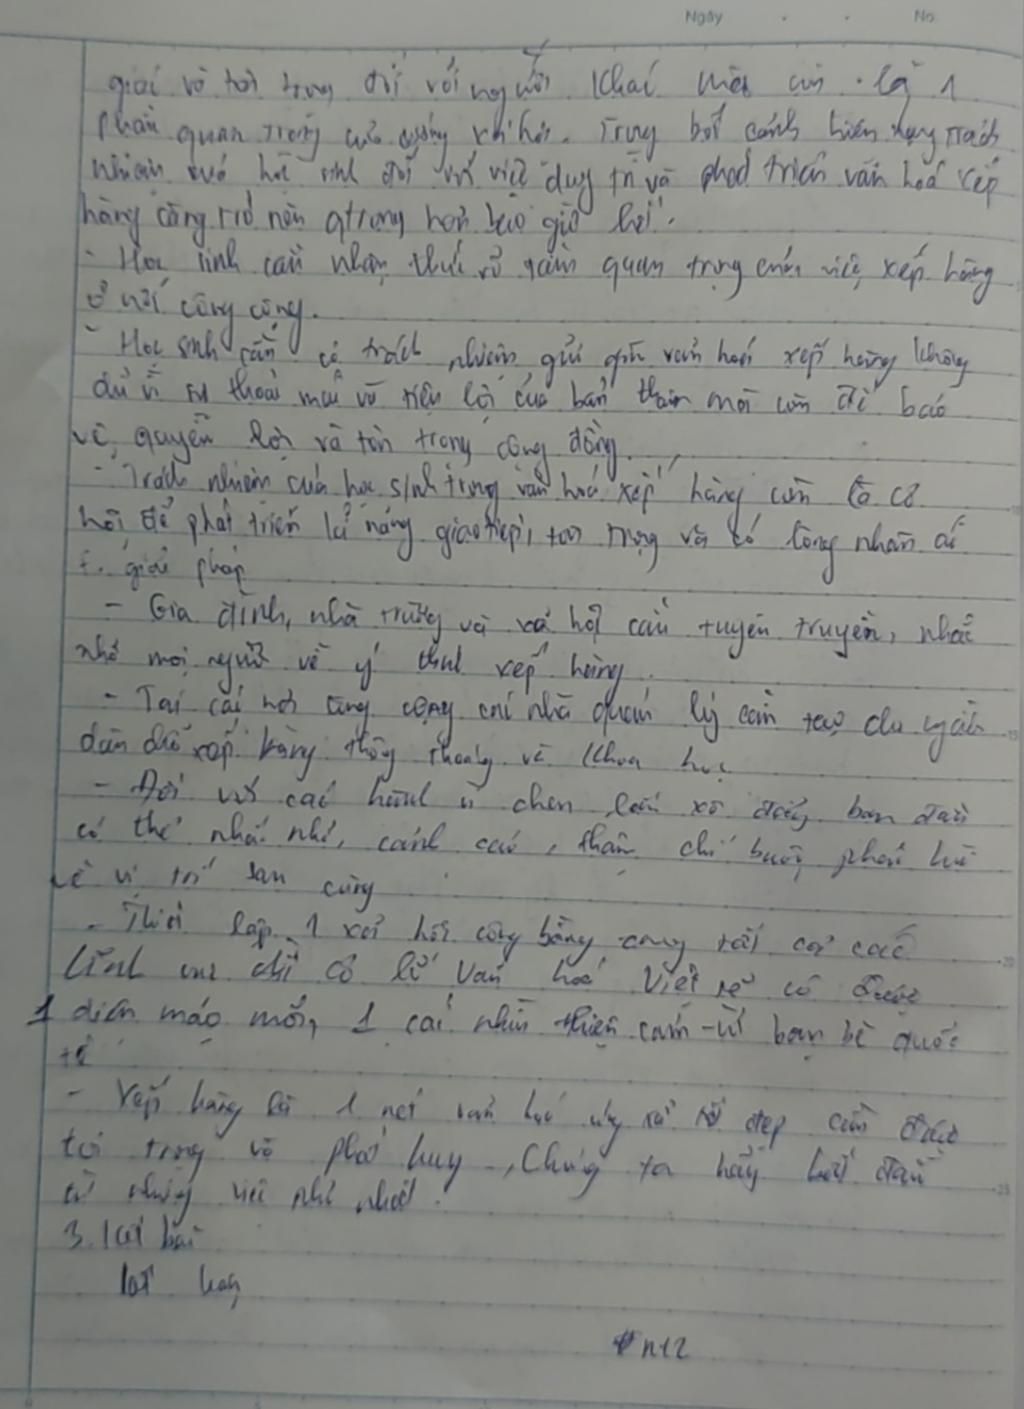 Ngày No
giải và tôn trọng đối với người khác mà còn là 1
phần quan trọng của xã hội. Trong bối cảnh hiện nay trách
nhiệm của học sinh đối với việc duy trì và phát triển văn hoá xếp
hàng càng trở nên qtrọng hơn bao giờ hết.
- Học sinh cần nhận thức rõ tầm quan trọng của việc xếp hàng
ở nơi công cộng.
- Học sinh cần có trách nhiệm giữ gìn văn hoá xếp hàng không
chỉ vì sự thoải mái và tiện lợi của bản thân mà còn để bảo
vệ quyền lợi và tôn trọng cộng đồng.
- Trách nhiệm của học sinh trong văn hoá xếp hàng còn là cơ
hội để phát triển kĩ năng giao tiếp, tôn trọng và có lòng nhân ái
f. giải pháp
- Gia đình, nhà trường và xã hội cần tuyên truyền, nhắc
nhở mọi người về ý thức xếp hàng.
- Tại các nơi công cộng các nhà quản lý cần tạo
dẫn xếp hàng thông thoáng và khoa học
- Đối với các hành vi chen lấn xô đẩy ban đầu
có thể nhắc nhở, cảnh cáo, thậm chí buộc phải lùi
về vị trí sau cùng
- Thiết lập 1 xã hội công bằng trong tất cả các
lĩnh vực chỉ có lẽ văn hoá Việt sẽ có được
1 diện mạo mới, 1 cái nhìn thiện cảm từ bạn bè quốc
tế
- Xếp hàng là 1 nét văn hoá ứng xử tốt đẹp cần được
tôn trọng và phát huy, Chúng ta hãy bắt đầu
từ những việc nhỏ nhất.
3. Kết bài
kết bài
n+2